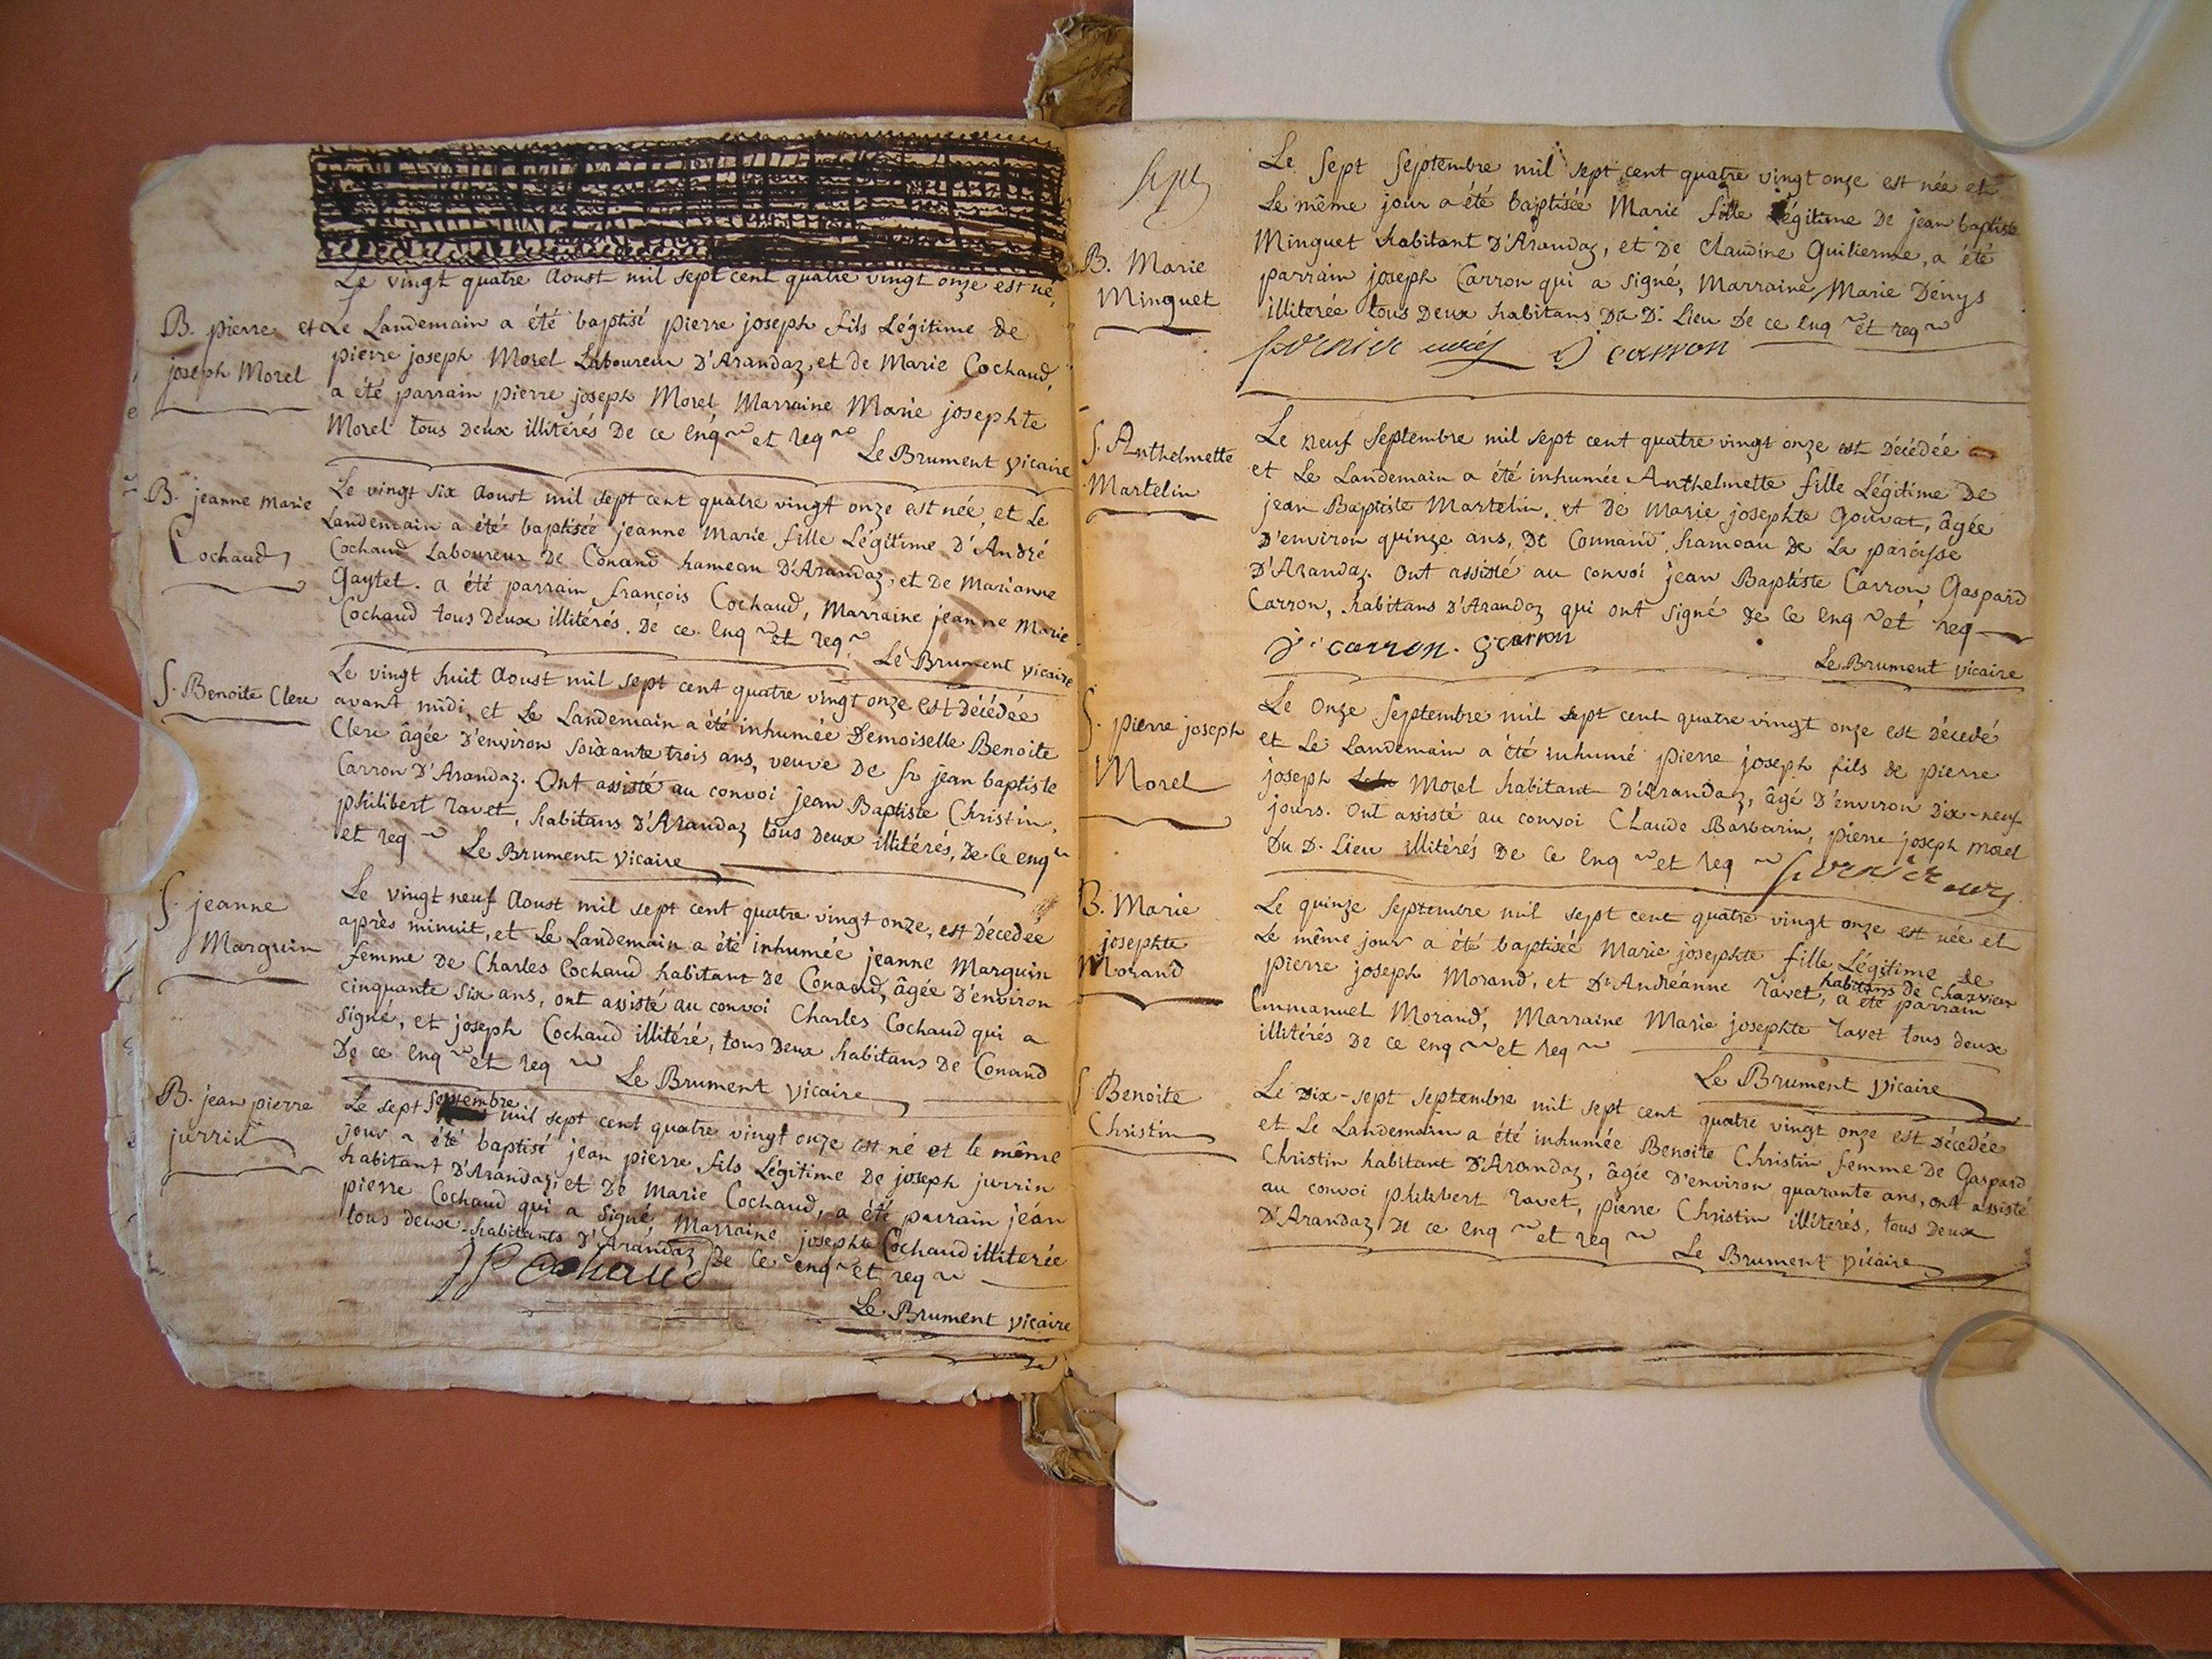 Le vingt quatre Aoust mil sept cent quatre vingt onze est né,
B. pierre
joseph Morel
et Le Landemain a été baptisé pierre joseph fils Légitime de
pierre joseph Morel Laboureur D'Arandaz, et de Marie Cochaud,
a été parrain pierre joseph Morel, Marraine Marie josephte
Morel tous Deux illitérés De ce enq et req
Le Brument vicaire
B. jeanne Marie
Cochaud
Le vingt six Aoust mil sept cent quatre vingt onze est née, et Le
Landemain a été baptisée jeanne Marie fille Légitime D'André
Cochaud Laboureur De Conand hameau D'Arandaz, et De Marianne
Gaytet. a été parrain françois Cochaud, Marraine jeanne Marie
Cochaud tous Deux illitérés. De ce enq et req
Le Brument vicaire
S. Benoite Clerc
Le vingt huit Aoust mil sept cent quatre vingt onze est Décédée
avant midi, et Le Landemain a été inhumée Demoiselle Benoite
Clerc âgée D'environ soixante trois ans, veuve De sr jean baptiste
Carron D'Arandaz. Ont assisté au convoi jean Baptiste Christin,
philibert ravet, habitans D'Arandaz tous Deux illitérés, De ce enq
et req Le Brument vicaire
S. jeanne
Marguin
Le vingt neuf Aoust mil sept cent quatre vingt onze, est Décedée
après minuit, et Le Landemain a été inhumée jeanne Marguin
femme De Charles Cochaud habitant De Conand, âgée D'environ
cinquante six ans, ont assisté au convoi Charles Cochaud qui a
signé, et joseph Cochaud illitéré, tous Deux habitans De Conand
De ce enq et req Le Brument vicaire
B. jean pierre
jurrin
Le sept septembre mil sept cent quatre vingt onze est né et le même
jour a été baptisé jean pierre fils Légitime De joseph jurrin
habitant D'Arandaz, et De Marie Cochaud, a été parrain jean
pierre Cochaud qui a signé, Marraine josephte Cochaud illiterée
tous deux habitants D'Arandaz De ce enq et req
JP Cochaud
Le Brument vicaire
sept
B. Marie
Minguet
Le sept septembre mil sept cent quatre vingt onze est née et
Le même jour a été baptisée Marie fille Légitime De jean baptiste
Minguet habitant D'Arandaz, et De Claudine Guilierme, a été
parrain joseph Carron qui a signé, Marraine Marie Dénys
illiterée tous Deux habitans Du D. Lieu De ce enq et req
fornier curé J carron
S. Anthelmette
Martelin
Le neuf septembre mil sept cent quatre vingt onze est Décédée
et Le Landemain a été inhumée Anthelmette fille Légitime De
jean Baptiste Martelin, et De Marie josephte Gouvat, âgée
D'environ quinze ans, De Connand hameau De La paroisse
D'Arandaz. Ont assisté au convoi jean Baptiste Carron Gaspard
Carron, habitans D'Arandaz qui ont signé De ce enq et req
J. carron. G carron
Le Brument vicaire
S. pierre joseph
Morel
Le Onze septembre mil sept cent quatre vingt onze est Décedé
et Le Landemain a été inhumé pierre joseph fils de pierre
joseph Morel habitant D'Arandaz, âgé D'environ Dix-neuf
jours. Ont assisté au convoi Claude Barbarin, pierre joseph morel
Du D. Lieu illitérés De ce enq et req fornier curé
B. Marie
josephte
Morand
Le quinze septembre mil sept cent quatre vingt onze est née et
Le même jour a été baptisée Marie josephte fille Légitime de
pierre joseph Morand, et D'Andréanne ravet, habitans de Charvieu a été parrain
Emmanuel Morand, Marraine Marie josephte ravet tous deux
illitérés De ce enq et req
Le Brument vicaire
S Benoite
Christin
Le Dix-sept septembre mil sept cent quatre vingt onze est Décedée
et Le Landemain a été inhumée Benoite Christin femme De Gaspard
Christin habitant D'Arandaz, âgée D'environ quarante ans, ont assisté
au convoi philibert ravet, pierre Christin illiterés, tous Deux
D'Arandaz De ce enq et req
Le Brument vicaire